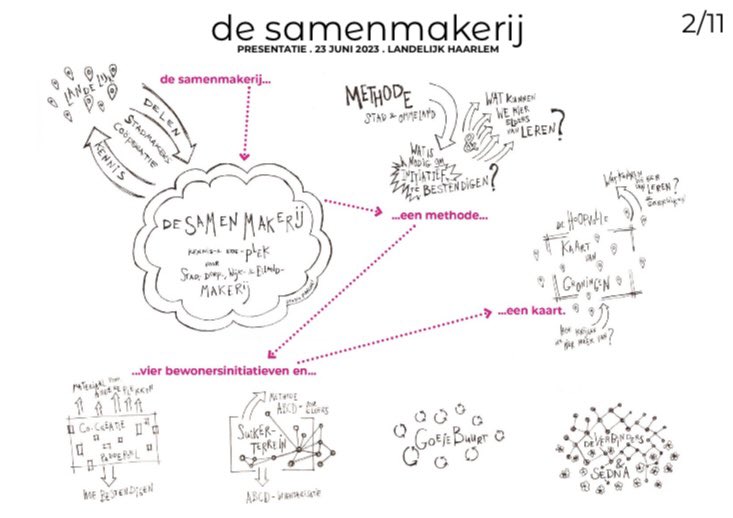 de samenmakerij
PRESENTATIE . 23 JUNI 2023 . LANDELIJK HAARLEM
2/11
de samenmakerij...
LANDELIJK
DELEN
STADMAKERS-
COÖPERATIE
KENNIS
DE SAMENMAKERIJ
KENNIS- & -PLEK
VOOR
STAD-, DORP-, WIJK- & EILAND-
MAKERIJ
METHODE
STAD & OMMELAND
WAT KUNNEN
WE HIER
&
ELDERS
VAN LEREN?
WAT IS
NODIG OM
INITIATIEF
TE BESTENDIGEN?
...een methode...
VAN LEREN?
DE HOOPVOLLE
KAART
VAN
GRONINGEN
...een kaart.
...vier bewonersinitiatieven en...
MATERIAAL VOOR
ANDERE PLEKKEN
CO-CREATIE
PADDEPOEL
HOE BESTENDIGEN
METHODE
ABCD-
SUIKER-
TERREIN
ABCD-
GOEIE BUURT
DE VERBINDERS
&
SEDNA